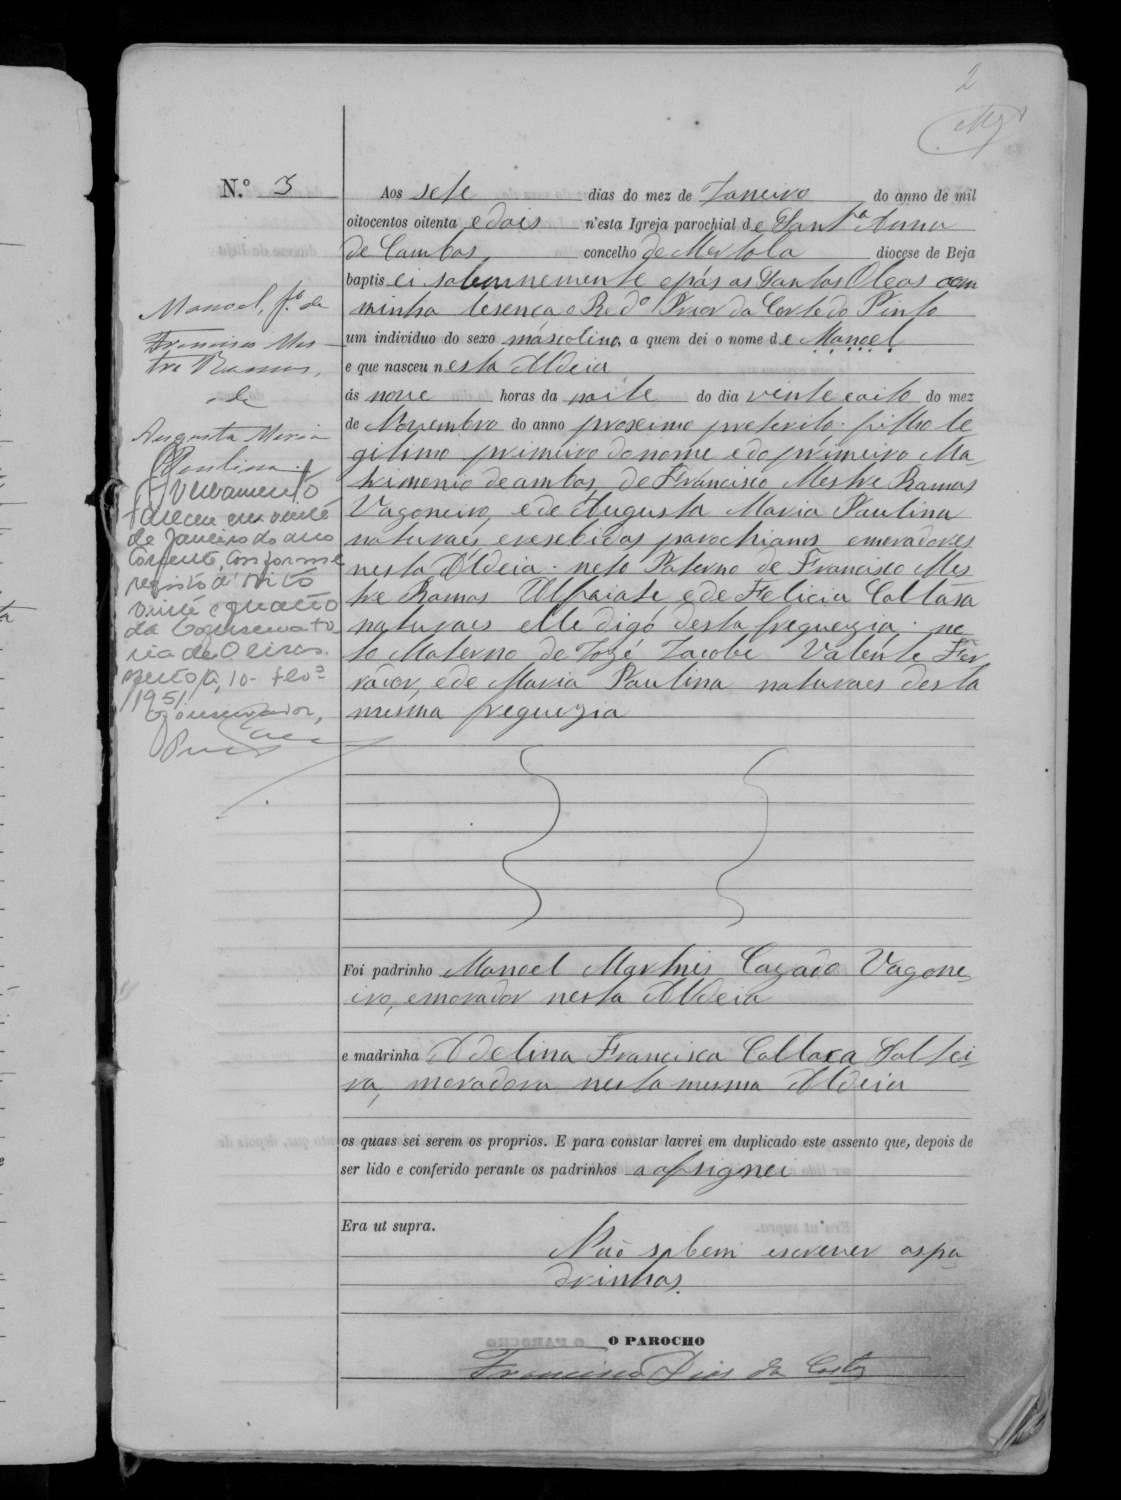 2
N.º 3
Aos sete dias do mez de Janeiro do anno de mil
oitocentos oitenta e dois n'esta Igreja parochial de Sant'ª Anna
de Cambas, concelho de Mertola diocese de Beja
baptisei solemnemente e pús os Santos Oleos com
minha lesença o Redº Prior da Corte do Pinto
um individuo do sexo másculino, a quem dei o nome de Manoel
e que nasceu nesta Aldeia
ás nove horas da noite do dia vinte e oito do mez
de Novembro do anno proximo preterito: filho le
gitimo primeiro do nome e do primeiro Ma-
trimonio de ambos, de Francisco Mestre Ramos
Vagoneiro, e de Augusta Maria Paulina
naturaes e resebidos parochianos e moradores
nesta Aldeia: neto Paterno de Francisco Mes
tre Ramos Alfaiate e de Felicia Collasa
naturaes elle digó desta freguezia: ne
to Materno de Jozé Jacobe Valente Fer
rador, e de Maria Paulina naturaes desta
mesma freguezia
Manoel, fº de
Francisco Mes-
tre Ramos,
de
Augusta Maria
Paulina
Averbamento
Faleceu em vinte
de Janeiro do ano
corrente, conforme
registo nº oito
vinte e quatro
da Conservato
ria de Oeiras.
Mertola, 10- Fevº
1951
O Conservador,
Foi padrinho Manoel Martins Cazaca Vagone-
iro, e morador nesta Aldeia
e madrinha Adelina Francisca Collaça Soltei-
ra, moradora nesta mesma Aldeia
os quaes sei serem os proprios. E para constar lavrei em duplicado este assento que, depois de
ser lido e conferido perante os padrinhos o assignei
Era ut supra.
Não sabem escrever os pa
drinhos.
O PAROCHO
Francisco Dias da Costa